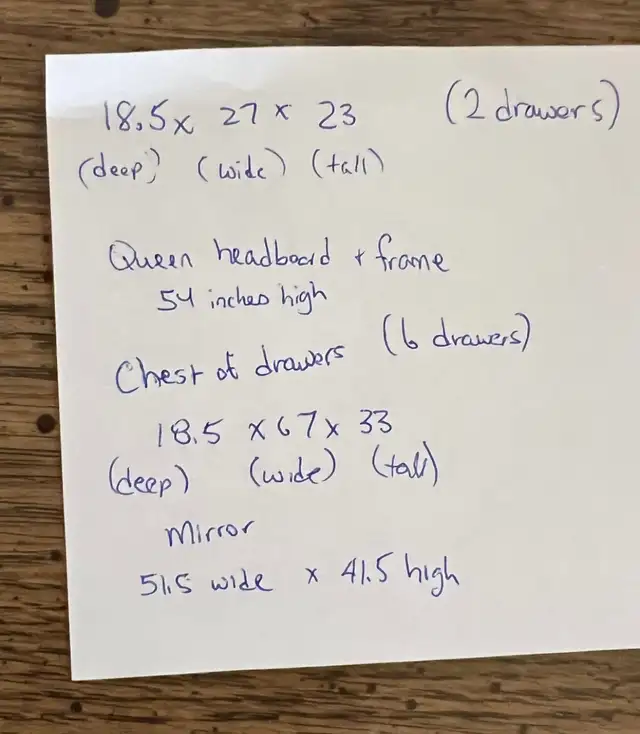 18.5 x 27 x 23 (2 drawers)
(deep) (wide) (tall)
Queen headboard + frame
54 inches high
Chest of drawers (6 drawers)
18.5 x 67 x 33
(deep) (wide) (tall)
Mirror
51.5 wide x 41.5 high